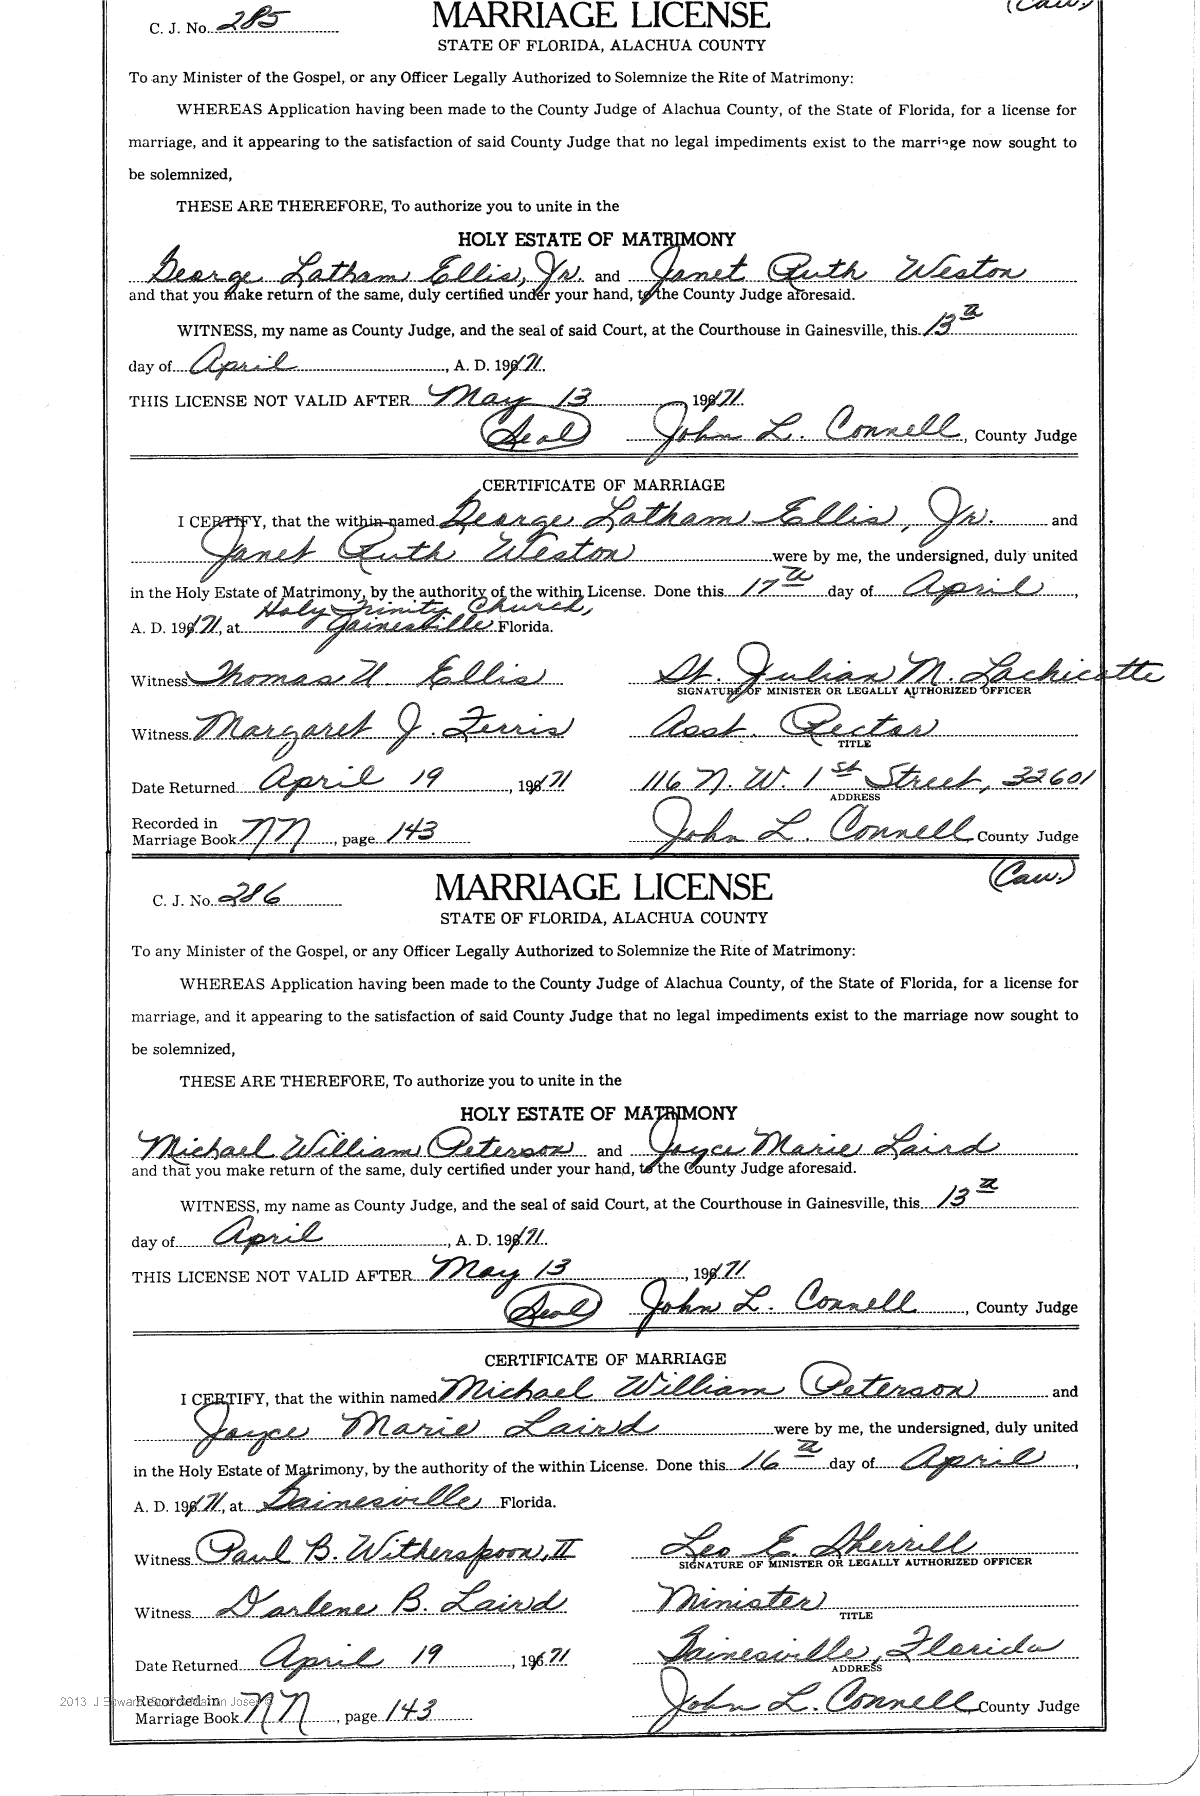 (Caw.)
C. J. No. 285
MARRIAGE LICENSE
STATE OF FLORIDA, ALACHUA COUNTY
To any Minister of the Gospel, or any Officer Legally Authorized to Solemnize the Rite of Matrimony:
WHEREAS Application having been made to the County Judge of Alachua County, of the State of Florida, for a license for
marriage, and it appearing to the satisfaction of said County Judge that no legal impediments exist to the marriage now sought to
be solemnized,
THESE ARE THEREFORE, To authorize you to unite in the
HOLY ESTATE OF MATRIMONY
George Latham Ellis, Jr. and Janet Ruth Weston
and that you make return of the same, duly certified under your hand, to the County Judge aforesaid.
WITNESS, my name as County Judge, and the seal of said Court, at the Courthouse in Gainesville, this 13th
day of April, A. D. 1971.
THIS LICENSE NOT VALID AFTER May 13 1971.
(Seal) John L. Connell, County Judge
CERTIFICATE OF MARRIAGE
I CERTIFY, that the within named George Latham Ellis, Jr. and
Janet Ruth Weston were by me, the undersigned, duly united
in the Holy Estate of Matrimony, by the authority of the within License. Done this 17th day of April,
Holy Trinity Church,
A. D. 1971, at Gainesville Florida.
Witness Thomas U Ellis St. Julian M. Lachicotte
SIGNATURE OF MINISTER OR LEGALLY AUTHORIZED OFFICER
Witness Margaret J. Ferris Asst. Rector
TITLE
Date Returned April 19, 1971 116 N. W. 1st Street, 32601
ADDRESS
Recorded in
Marriage Book NN, page 143 John L. Connell County Judge
(Caw.)
C. J. No. 286
MARRIAGE LICENSE
STATE OF FLORIDA, ALACHUA COUNTY
To any Minister of the Gospel, or any Officer Legally Authorized to Solemnize the Rite of Matrimony:
WHEREAS Application having been made to the County Judge of Alachua County, of the State of Florida, for a license for
marriage, and it appearing to the satisfaction of said County Judge that no legal impediments exist to the marriage now sought to
be solemnized,
THESE ARE THEREFORE, To authorize you to unite in the
HOLY ESTATE OF MATRIMONY
Michael William Peterson and Joyce Marie Laird
and that you make return of the same, duly certified under your hand, to the County Judge aforesaid.
WITNESS, my name as County Judge, and the seal of said Court, at the Courthouse in Gainesville, this 13th
day of April, A. D. 1971.
THIS LICENSE NOT VALID AFTER May 13, 1971
(Seal) John L. Connell, County Judge
CERTIFICATE OF MARRIAGE
I CERTIFY, that the within named Michael William Peterson and
Joyce Marie Laird were by me, the undersigned, duly united
in the Holy Estate of Matrimony, by the authority of the within License. Done this 16th day of April,
A. D. 1971, at Gainesville Florida.
Witness Paul B. Witherspoon, II Leo E. Sherrill
SIGNATURE OF MINISTER OR LEGALLY AUTHORIZED OFFICER
Witness Darlene B. Laird Minister
TITLE
Date Returned April 19, 1971 Gainesville, Florida
ADDRESS
Recorded in
Marriage Book NN, page 143 John L. Connell County Judge
2013 J